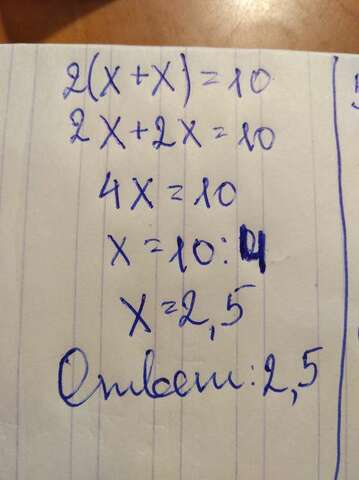 2(x+x)=10
2x+2x=10
4x=10
x=10:4
x=2,5
Ответ: 2,5